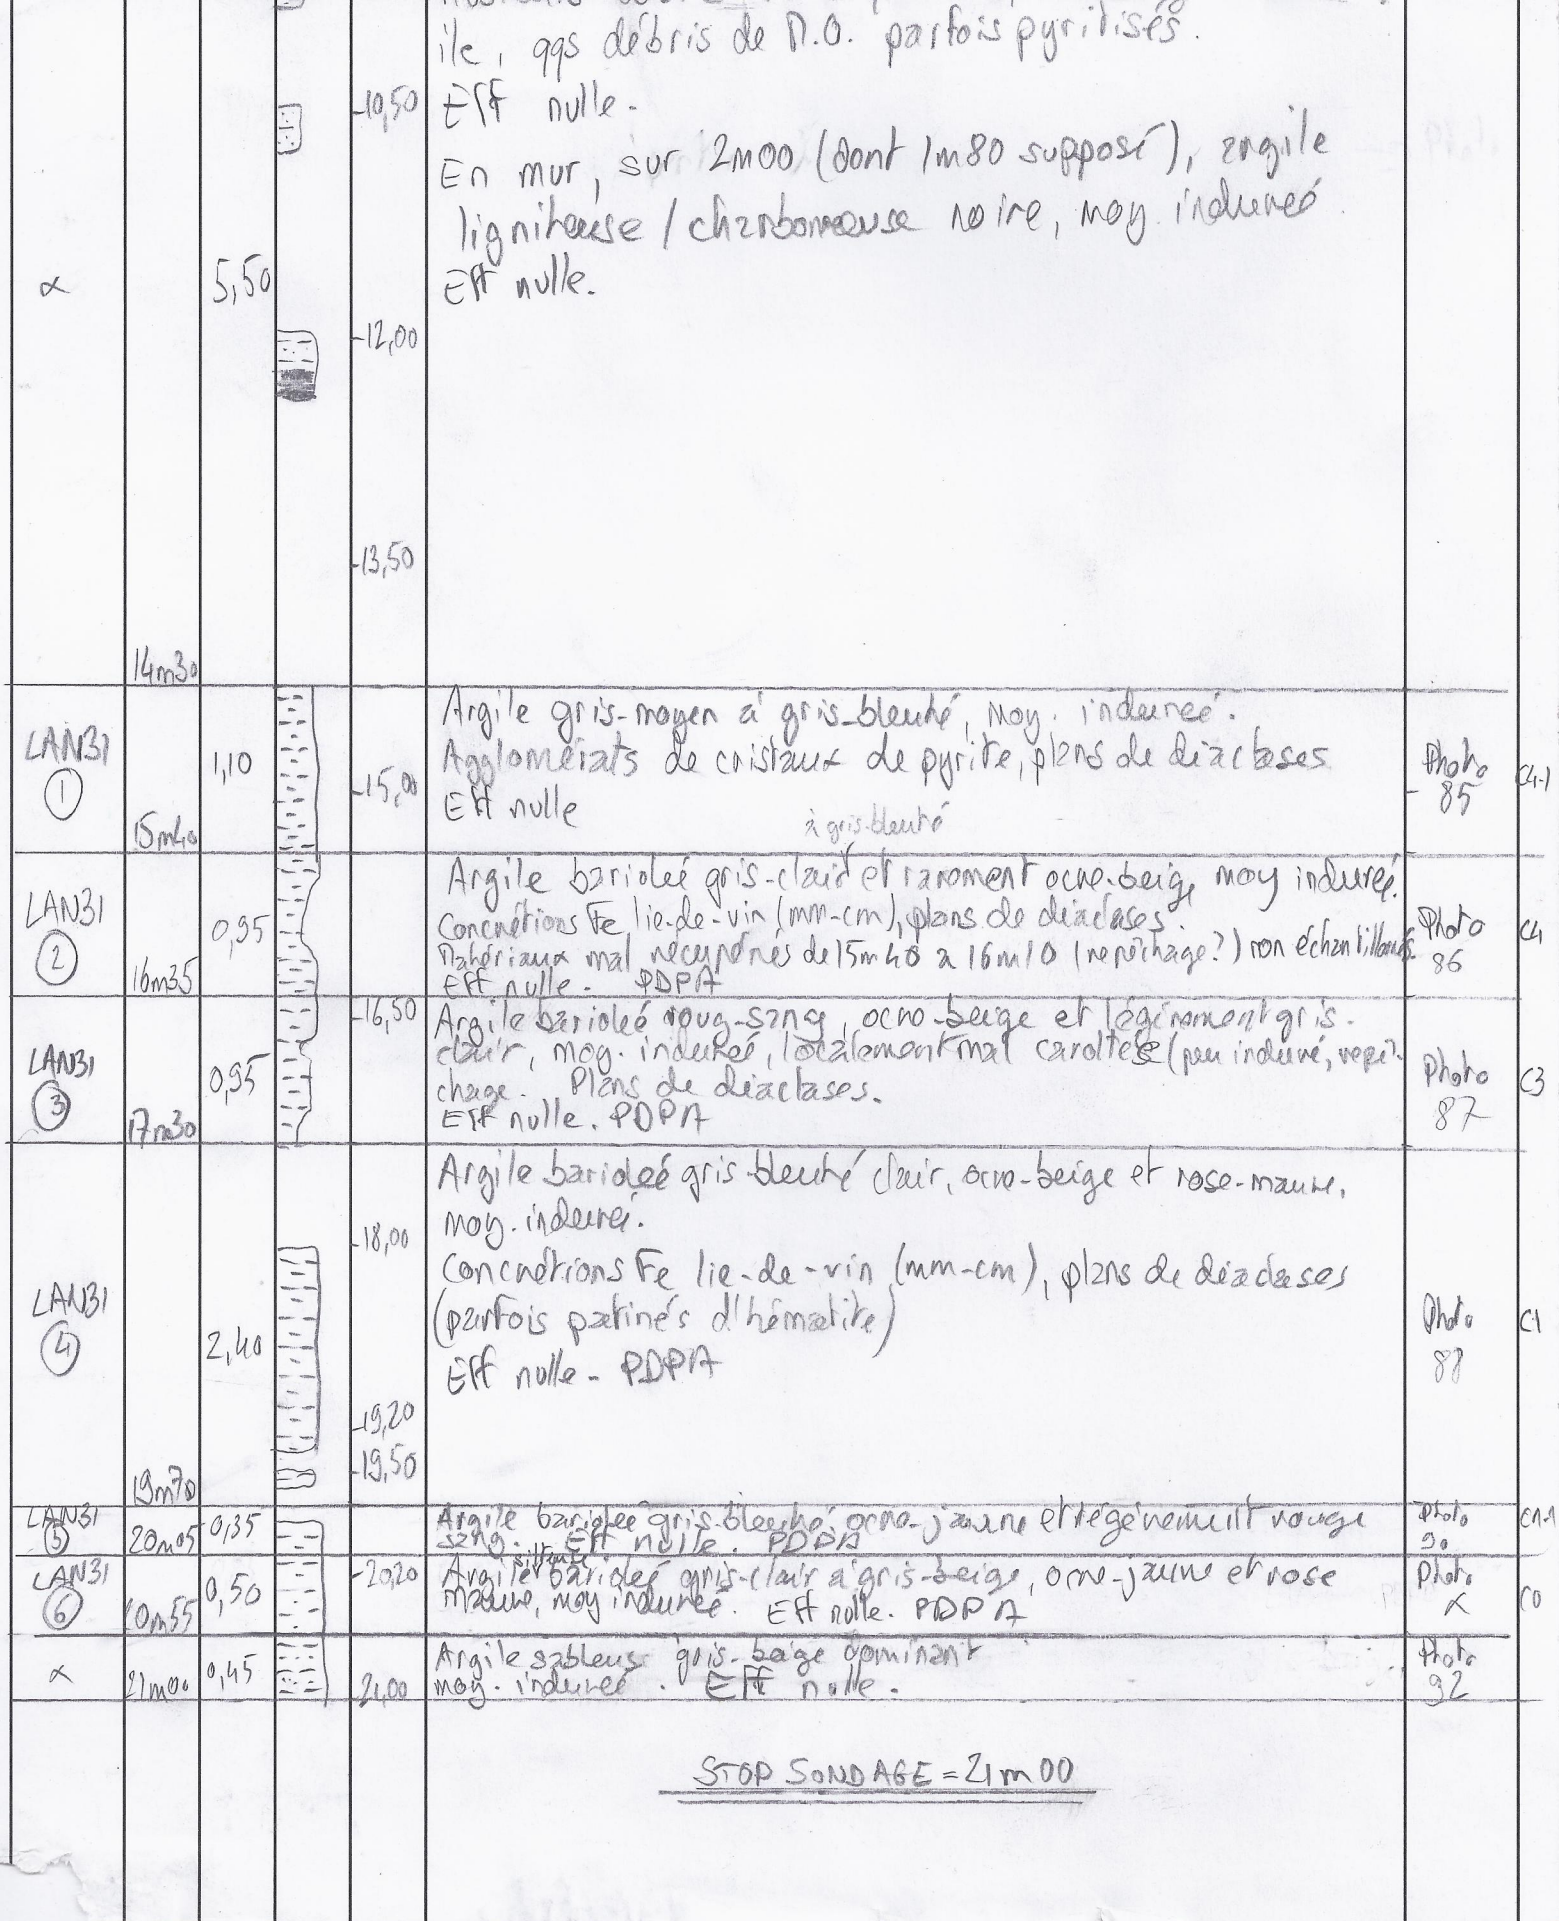 ile, qqs débris de M.O. parfois pyritisés.
-10,50
Eff nulle.
En mur, sur 2m00 (dont 1m80 supposé), argile
ligniteuse / charbonneuse noire, moy. indurée
∝ 5,50
Eff nulle.
-12,00
-13,50
14m30
LAN31
1
1,10
15m40
-15,00
Argile gris-moyen à gris-bleuté, moy. indurée.
Agglomérats de cristaux de pyrite, plans de diaclases
Eff nulle
Photo
85
C4-1
LAN31
2
0,95
16m35
à gris-bleuté
Argile bariolée gris-clair et rarement ocre-beige, moy indurée.
Concrétions Fe lie-de-vin (mm-cm), plans de diaclases.
Matériaux mal récupérés de 15m40 à 16m10 (repêchage?) non échantillonnés.
Eff nulle. PDPA
Photo
86
C4
LAN31
3
0,95
17m30
-16,50
Argile bariolée roug-sang, ocre-beige et légèrement gris-
clair, moy. indurée, localement mal carottée (peu induré, repê-
chage. Plans de diaclases.
Eff nulle. PDPA
Photo
87
C3
LAN31
4
2,40
19m70
-18,00
-19,20
-19,50
Argile bariolée gris-bleuté clair, ocre-beige et rose-mauve,
moy. indurée.
Concrétions Fe lie-de-vin (mm-cm), plans de diaclases
(parfois patinés d'hématite)
Eff nulle - PDPA
Photo
88
C1
LAN31
5
20m05
0,35
Argile bariolée gris-bleuté, ocre-jaune et légèrement rouge
sang. Eff nulle. PDPA
Photo
90
LAN31
6
20m55
0,50
-20,20
silteuse
Argile bariolée gris-clair à gris-beige, ocre-jaune et rose
mauve, moy indurée. Eff nulle. PDPA
Photo
∝
C0
∝
21m00
0,45
21,00
Argile sableuse gris-beige dominant
moy. indurée. Eff nulle.
Photo
92
STOP SONDAGE = 21m00